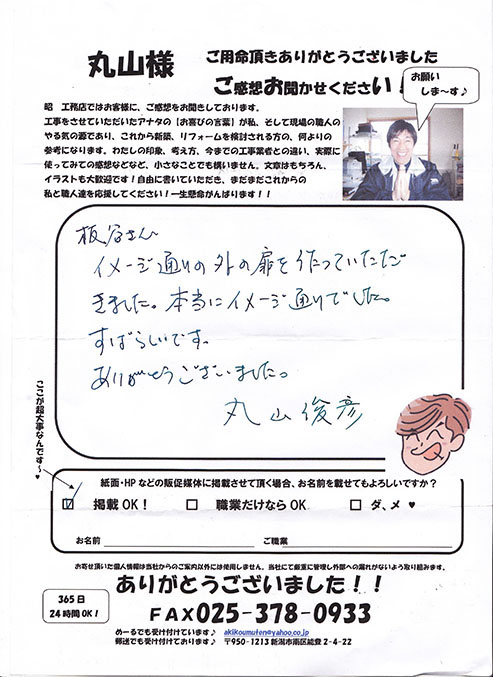 丸山様
ご用命頂きありがとうございました
ご感想お聞かせください！
お願い
しま～す♪
昭　工務店ではお客様に、ご感想をお聞きしております。
工事をさせていただいたアナタの【お喜びの言葉】が私、そして現場の職人の
やる気の源であり、これから新築、リフォームを検討される方の、何よりの
参考になります。わたしの印象、考え方、今までの工事業者との違い、実際に
使ってみての感想などなど、小さなことでも構いません。文章はもちろん、
イラストも大歓迎です！自由に書いていただき、まだまだこれからの
私と職人達を応援してください！一生懸命がんばります！！
板谷さん
イメージ通りの外の扉を作っていただ
きました。本当にイメージ通りでした。
すばらしいです。
ありがとうございました。
丸山俊彦
ここが超大事なんです～♥
紙面・HPなどの販促媒体に掲載させて頂く場合、お名前を載せてもよろしいですか？
☑ 掲載OK！　□ 職業だけならOK　□ ダ、メ ♥
お名前　ご職業
お寄せ頂いた個人情報は当社からのご案内以外には使用しません。当社にて厳重に管理し外部への漏れがないよう取り組みます。
ありがとうございました！！
365日
24時間OK！
FAX025-378-0933
めーるでも受け付けています♪　akikoumuten@yahoo.co.jp
郵送でも受け付けております♪　〒950-1213 新潟市南区能登2-4-22